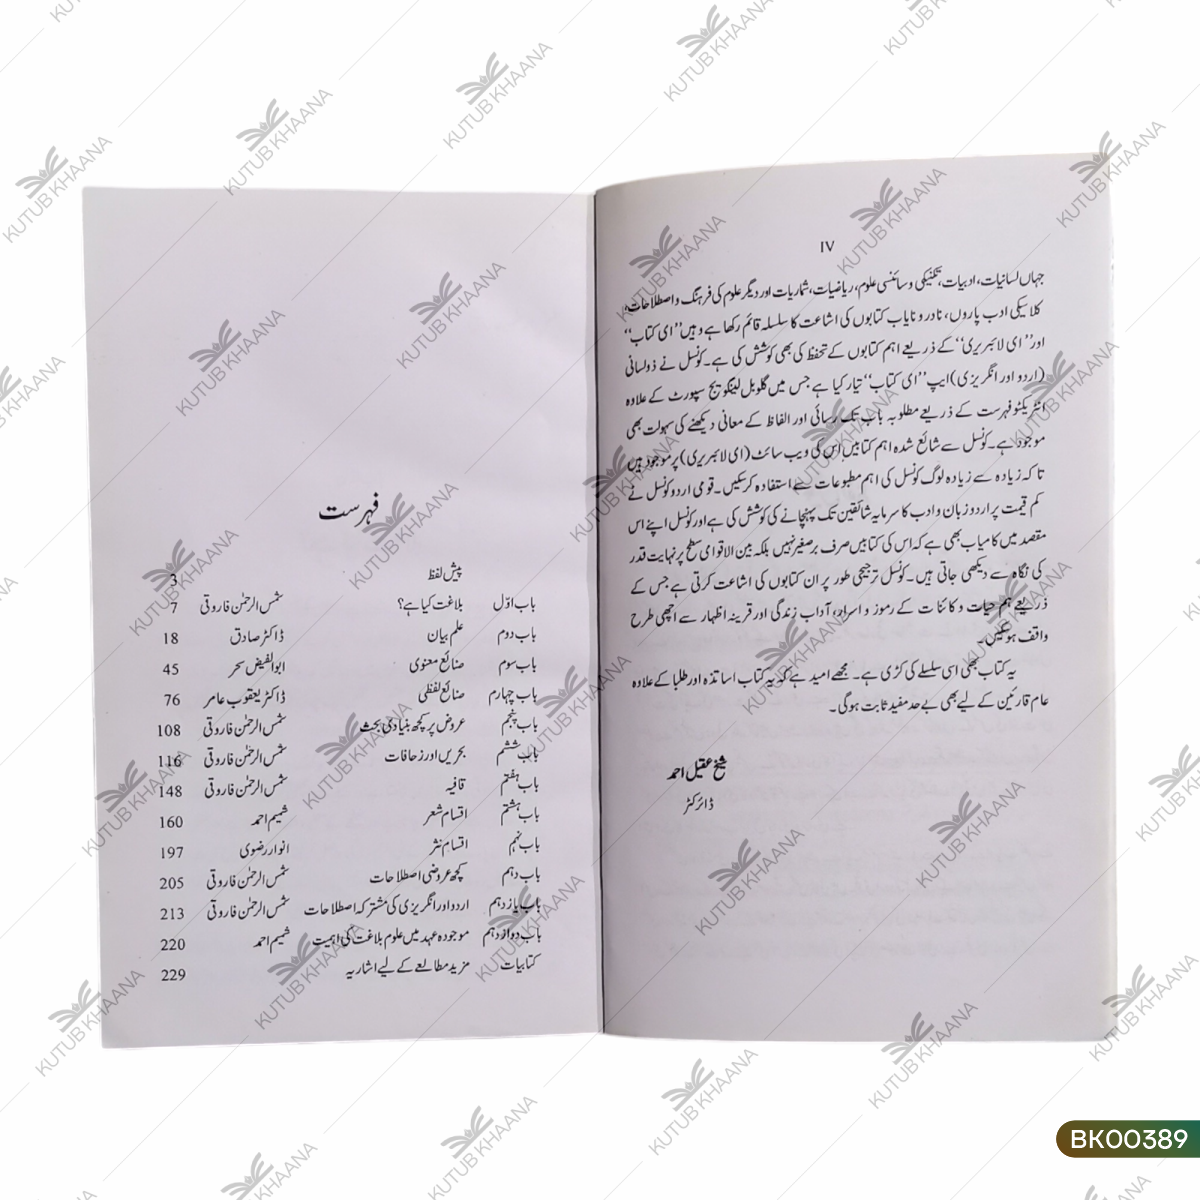 IV
جہاں لسانیات، ادبیات، تکنیکی و سائنسی علوم، ریاضیات، شماریات اور دیگر علوم کی فرہنگ و اصطلاحات،
کلاسیکی ادب پاروں، نادر و نایاب کتابوں کی اشاعت کا سلسلہ قائم رکھا ہے وہیں ’’ای کتاب‘‘
اور ’’ای لائبریری‘‘ کے ذریعے اہم کتابوں کے تحفظ کی بھی کوشش کی ہے۔ کونسل نے ذولسانی
(اردو اور انگریزی) ایپ ’’ای کتاب‘‘ تیار کیا ہے جس میں گلوبل لینگویج سپورٹ کے علاوہ
انٹریکٹو فہرست کے ذریعے مطلوبہ باب تک رسائی اور الفاظ کے معانی دیکھنے کی سہولت بھی
موجود ہے۔ کونسل سے شائع شدہ اہم کتابیں اس کی ویب سائٹ (ای لائبریری) پر موجود ہیں
تاکہ زیادہ سے زیادہ لوگ کونسل کی اہم مطبوعات سے استفادہ کرسکیں۔ قومی اردو کونسل نے
کم قیمت پر اردو زبان و ادب کا سرمایہ شائقین تک پہنچانے کی کوشش کی ہے اور کونسل اپنے اس
مقصد میں کامیاب بھی ہے کہ اس کی کتابیں صرف برصغیر نہیں بلکہ بین الاقوامی سطح پر نہایت قدر
کی نگاہ سے دیکھی جاتی ہیں۔ کونسل ترجیحی طور پر ان کتابوں کی اشاعت کرتی ہے جس کے
ذریعے ہم حیات و کائنات کے رموز و اسرار، آداب زندگی اور قرینہ اظہار سے اچھی طرح
واقف ہوسکیں۔
یہ کتاب بھی اسی سلسلے کی کڑی ہے۔ مجھے امید ہے کہ یہ کتاب اساتذہ اور طلبا کے علاوہ
عام قارئین کے لیے بھی بے حد مفید ثابت ہوگی۔
شیخ عقیل احمد
ڈائرکٹر
فہرست
پیش لفظ 3
باب اوّل بلاغت کیا ہے؟ شمس الرحمٰن فاروقی 7
باب دوم علم بیان ڈاکٹر صادق 18
باب سوم صنائع معنوی ابوالفیض سحر 45
باب چہارم صنائع لفظی ڈاکٹر یعقوب عامر 76
باب پنجم عروض پر کچھ بنیادی بحث شمس الرحمٰن فاروقی 108
باب ششم بحریں اور زحافات شمس الرحمٰن فاروقی 116
باب ہفتم قافیہ شمس الرحمٰن فاروقی 148
باب ہشتم اقسام شعر شمیم احمد 160
باب نہم اقسام نثر انوار رضوی 197
باب دہم کچھ عروضی اصطلاحات شمس الرحمٰن فاروقی 205
باب یازدہم اردو اور انگریزی کی مشترکہ اصطلاحات شمس الرحمٰن فاروقی 213
باب دوازدہم موجودہ عہد میں علوم بلاغت کی اہمیت شمیم احمد 220
کتابیات مزید مطالعے کے لیے اشاریہ 229
KUTUB KHAANA
BK00389